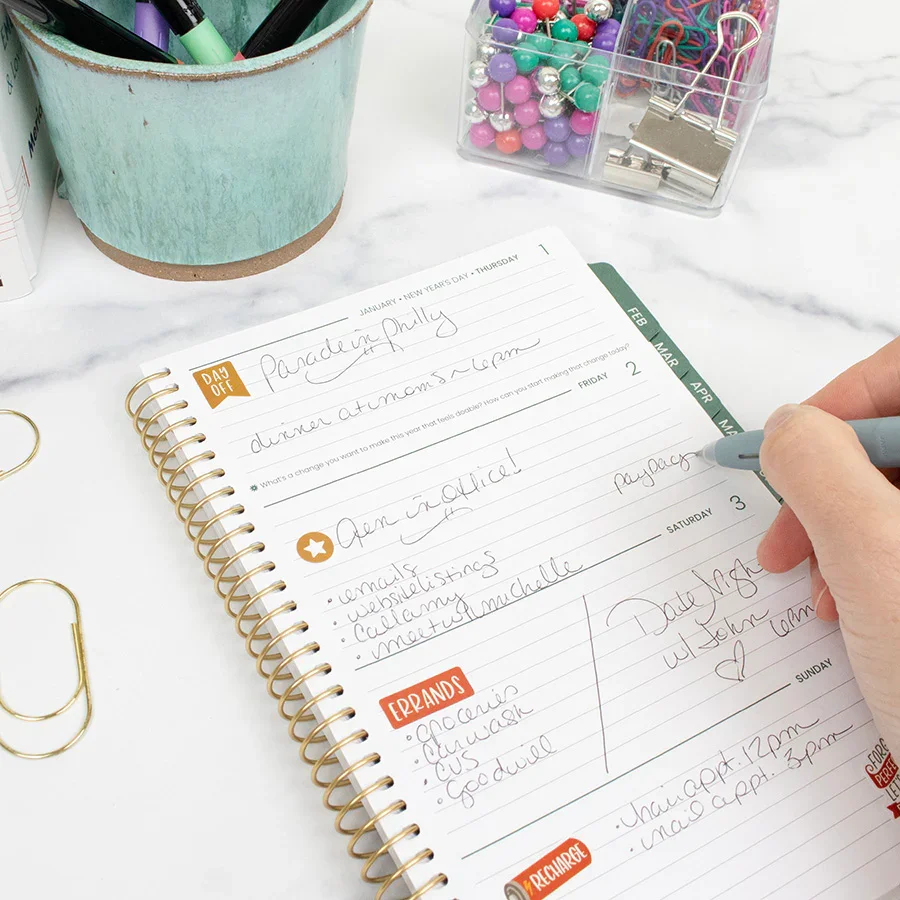 JANUARY • NEW YEAR'S DAY • THURSDAY 1
DAY
OFF
Parade in Philly
dinner at moms ~ 6pm
What's a change you want to make this year that feels doable? How can you start making that change today?
FRIDAY 2
Open in Office!
payday
• emails
• website listings
• call amy
• meet w/ michelle
SATURDAY 3
ERRANDS
• groceries
• car wash
• CVS
• goodwill
Date Nigh
w/ John 6pm
SUNDAY
RECHARGE
• hair appt. 12pm
• nail appt. 3pm
FEB
MAR
APR
MA
PERFE